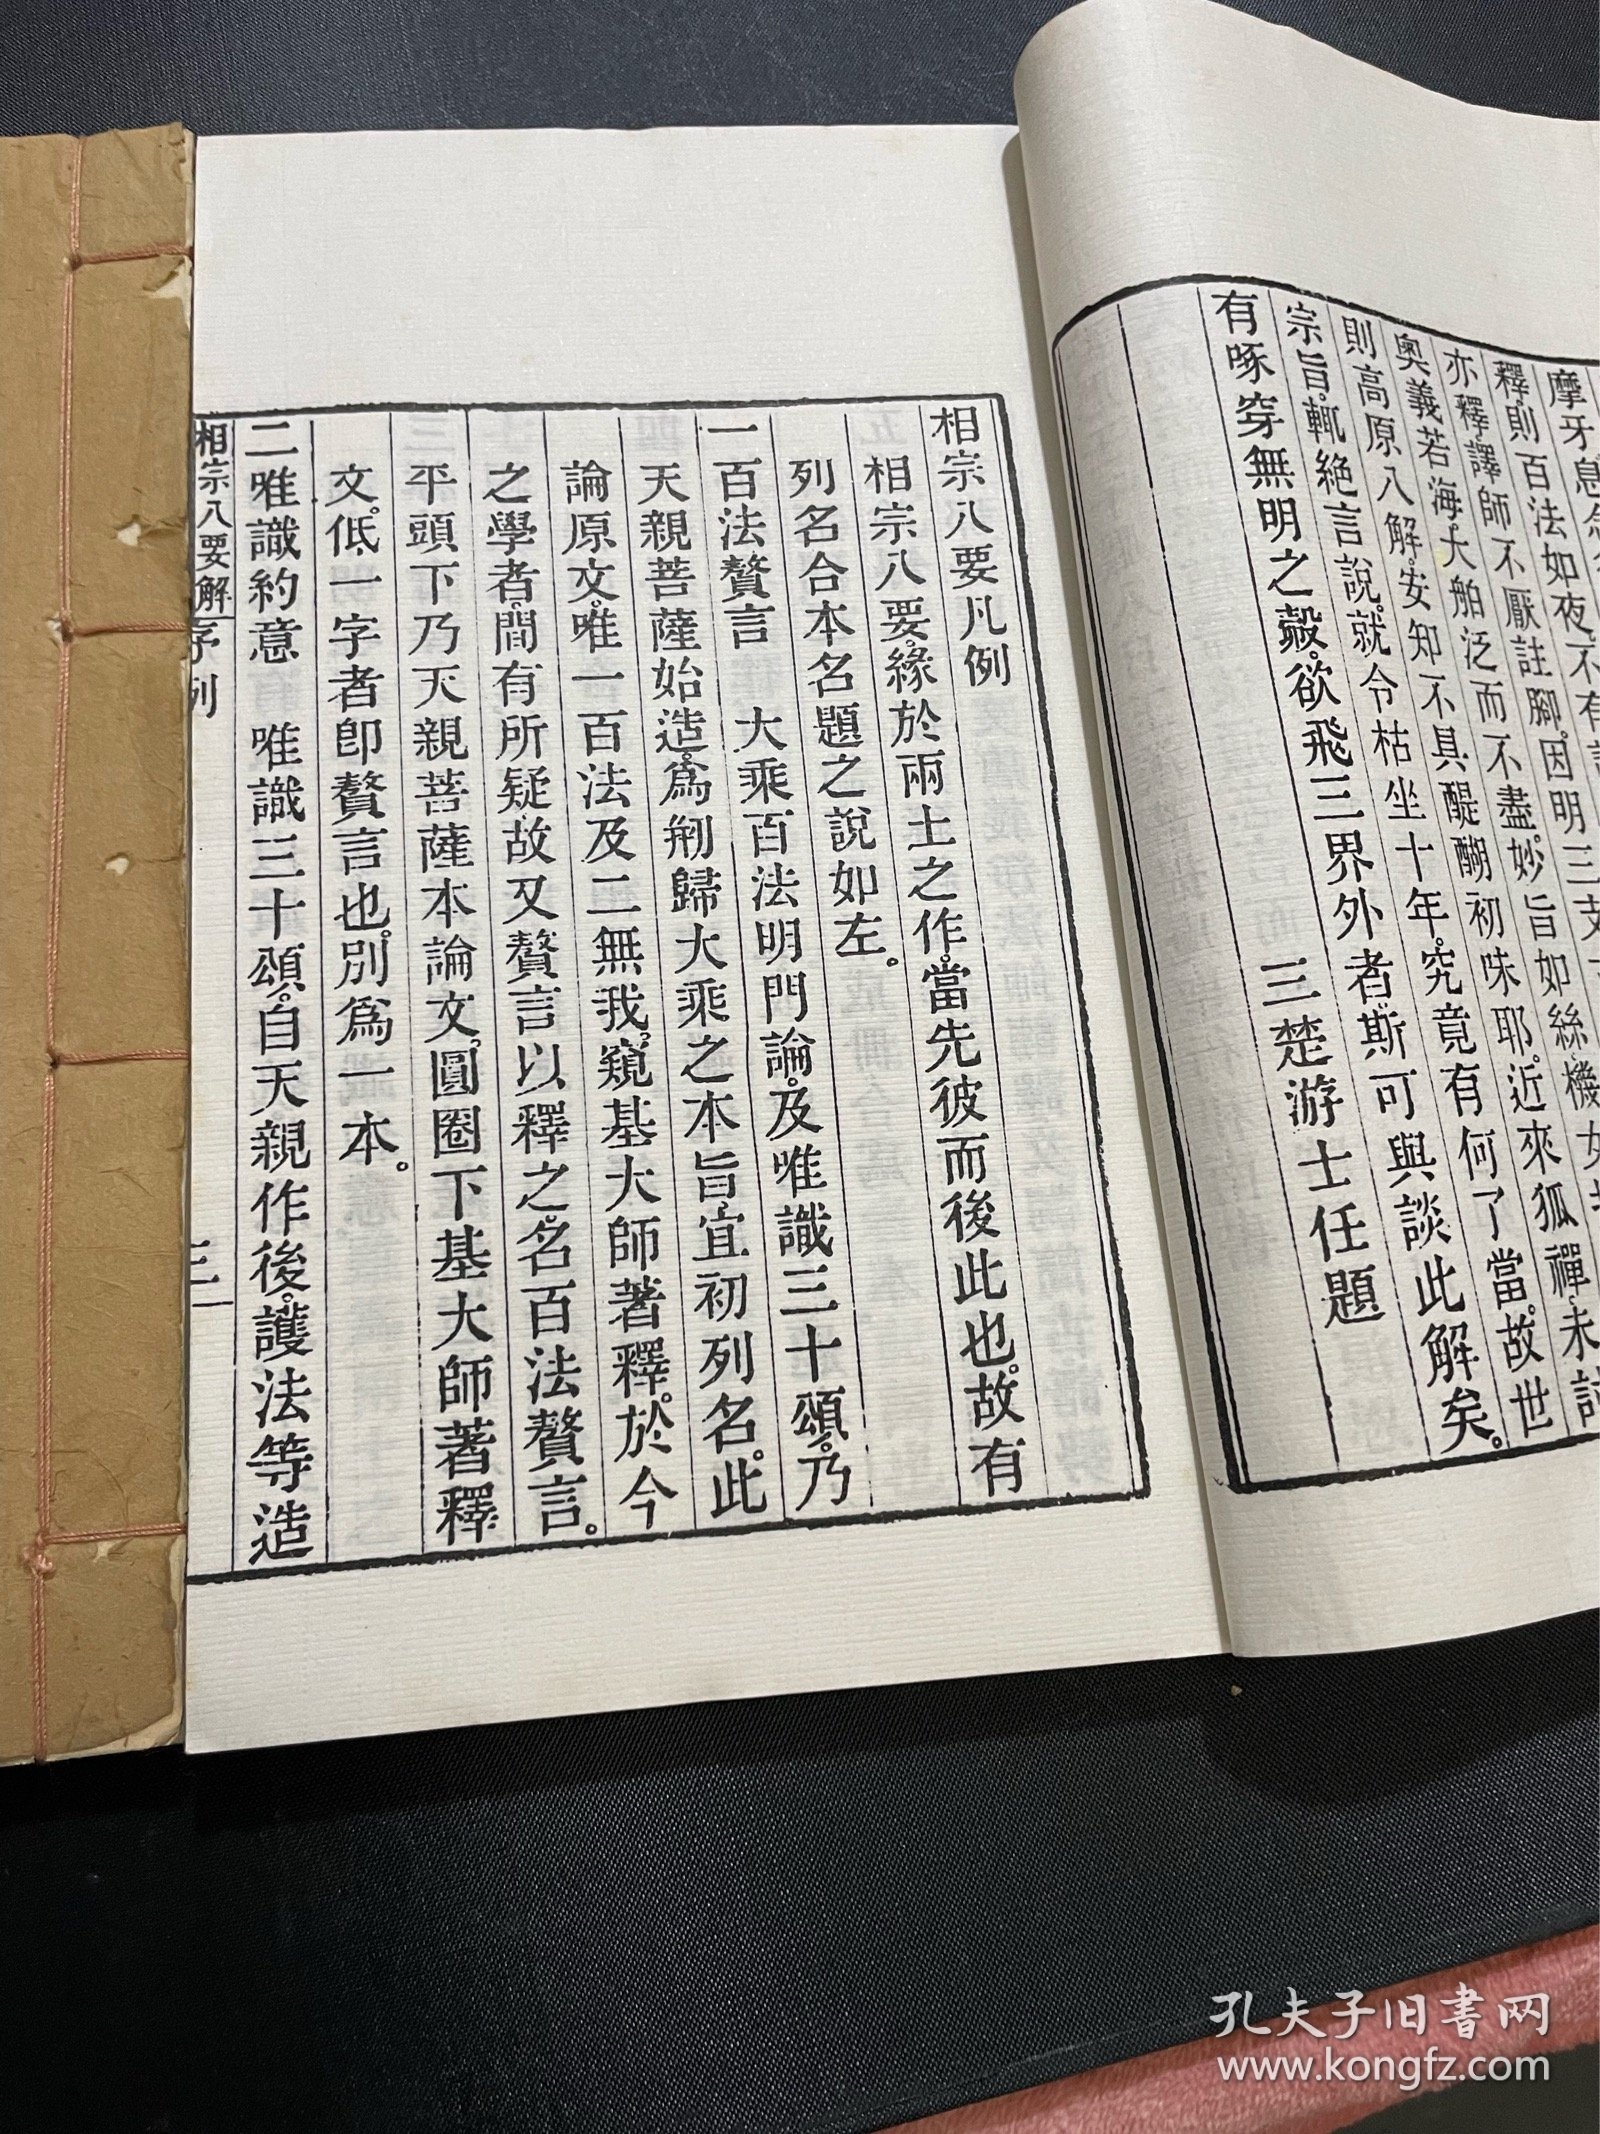 摩牙息念
釋則百法如夜不有
亦釋譯師不厭註腳因明三支
奧義若海大舶泛而不盡妙旨如絲機女
則高原八解安知不具醍醐初味耶近來狐禪未
宗旨輒絕言說就令枯坐十年究竟有何了當故世
有啄穿無明之㲉欲飛三界外者斯可與談此解矣。
三楚游士任題
相宗八要凡例
相宗八要緣於兩土之作當先彼而後此也故有
列名合本名題之說如左。
一百法贅言　大乘百法明門論及唯識三十頌乃
天親菩薩始造為剏歸大乘之本旨宜初列名此
論原文唯一百法及二無我窺基大師著釋於今
之學者間有所疑故又贅言以釋之名百法贅言。
平頭下乃天親菩薩本論文圓圈下基大師著釋
文低一字者卽贅言也別為一本。
二唯識約意　唯識三十頌自天親作後護法等造
相宗八要解 序例 三
孔夫子旧书网
www.kongfz.com